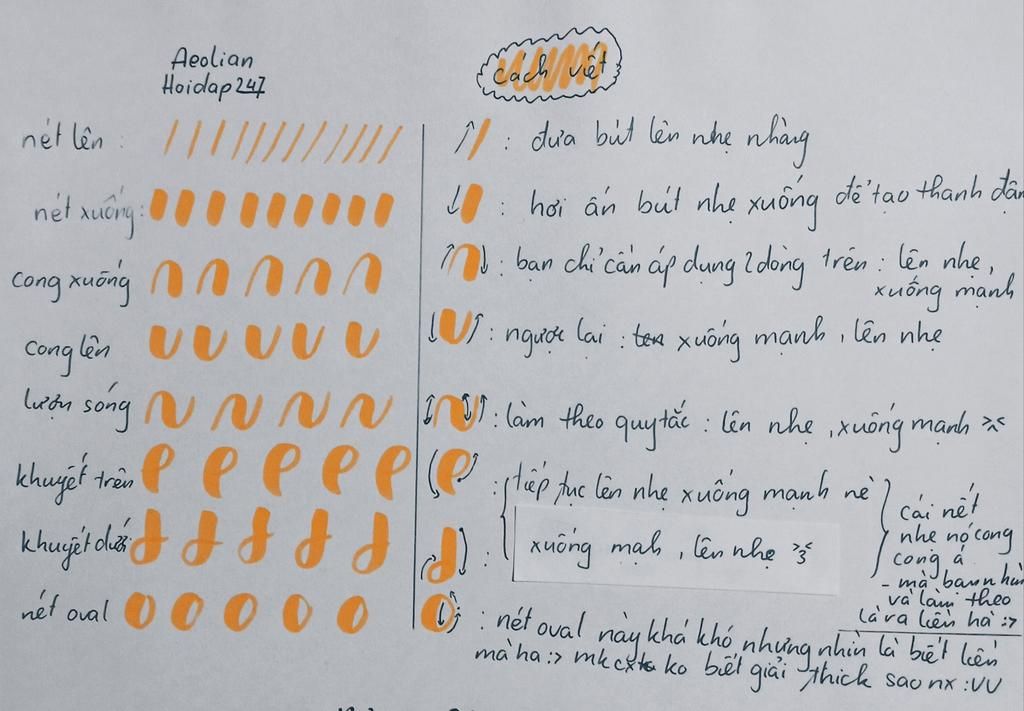 Aeolian
Hoidap247
cách viết
nét lên :
: đưa bút lên nhẹ nhàng
nét xuống:
: hơi ấn bút nhẹ xuống để tạo thanh đậm
cong xuống
: bạn chỉ cần áp dụng 2 dòng trên : lên nhẹ,
xuống mạnh
cong lên
: ngược lại : xuống mạnh, lên nhẹ
lượn sóng
: làm theo quy tắc : lên nhẹ, xuống mạnh >.<
khuyết trên
: tiếp tục lên nhẹ xuống mạnh nè
khuyết dưới
: xuống mạh, lên nhẹ >3<
cái nét
nhẹ nó cong
cong á
- mà bạn nhìn
và làm theo
là ra liền hà :>
nét oval
: nét oval này khá khó nhưng nhìn là biết liền
mà ha :> mk ko biết giải thick sao nx :VV